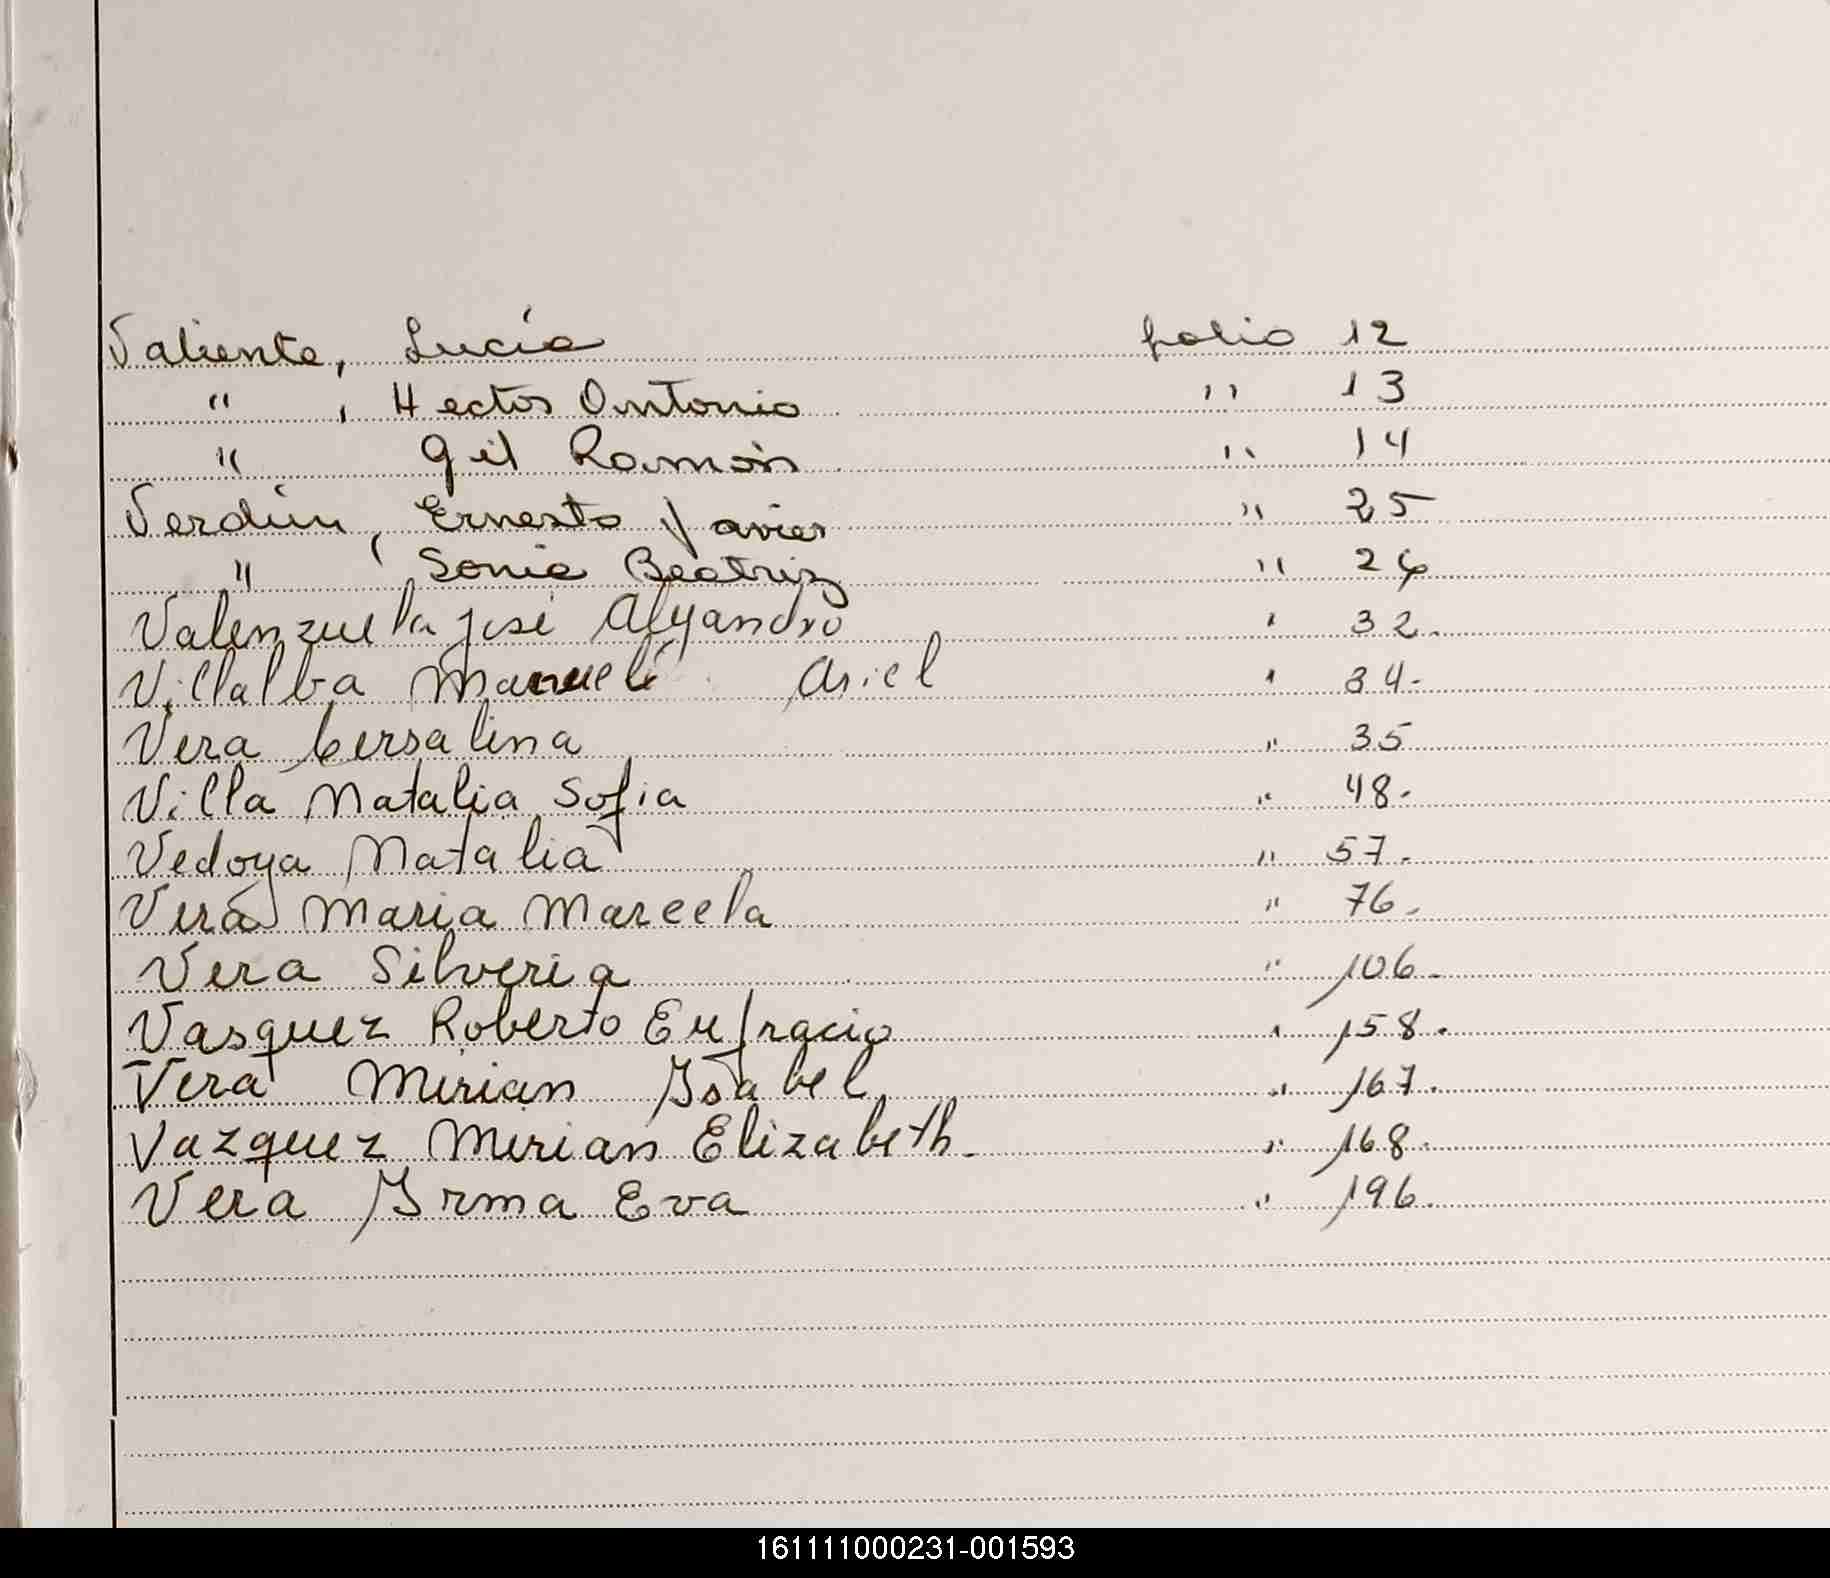 Valiente, Lucía folio 12
" , Hector Antonio " 13
" Gil Ramón " 14
Verdún, Ernesto Javier " 25
" , Sonia Beatriz " 26
Valenzuela José Alejandro " 32.
Villalba Manuel Ariel " 34.
Vera Cersalina " 35
Villa Natalia Sofia " 48.
Vedoya Natalia " 57.
Vera Maria Marcela " 76.
Vera Silveria " 106.
Vasquez Roberto Eufracio " 158.
Vera Mirian Isabel " 167.
Vazquez Mirian Elizabeth. " 168.
Vera Irma Eva " 196.
161111000231-001593